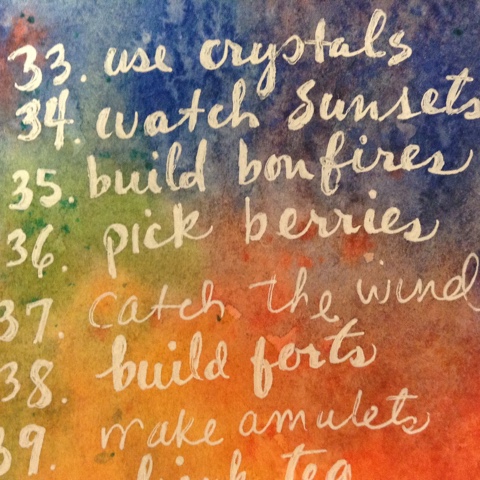 33. use crystals
34. watch sunsets
35. build bonfires
36. pick berries
37. catch the wind
38. build forts
39. make amulets
drink tea